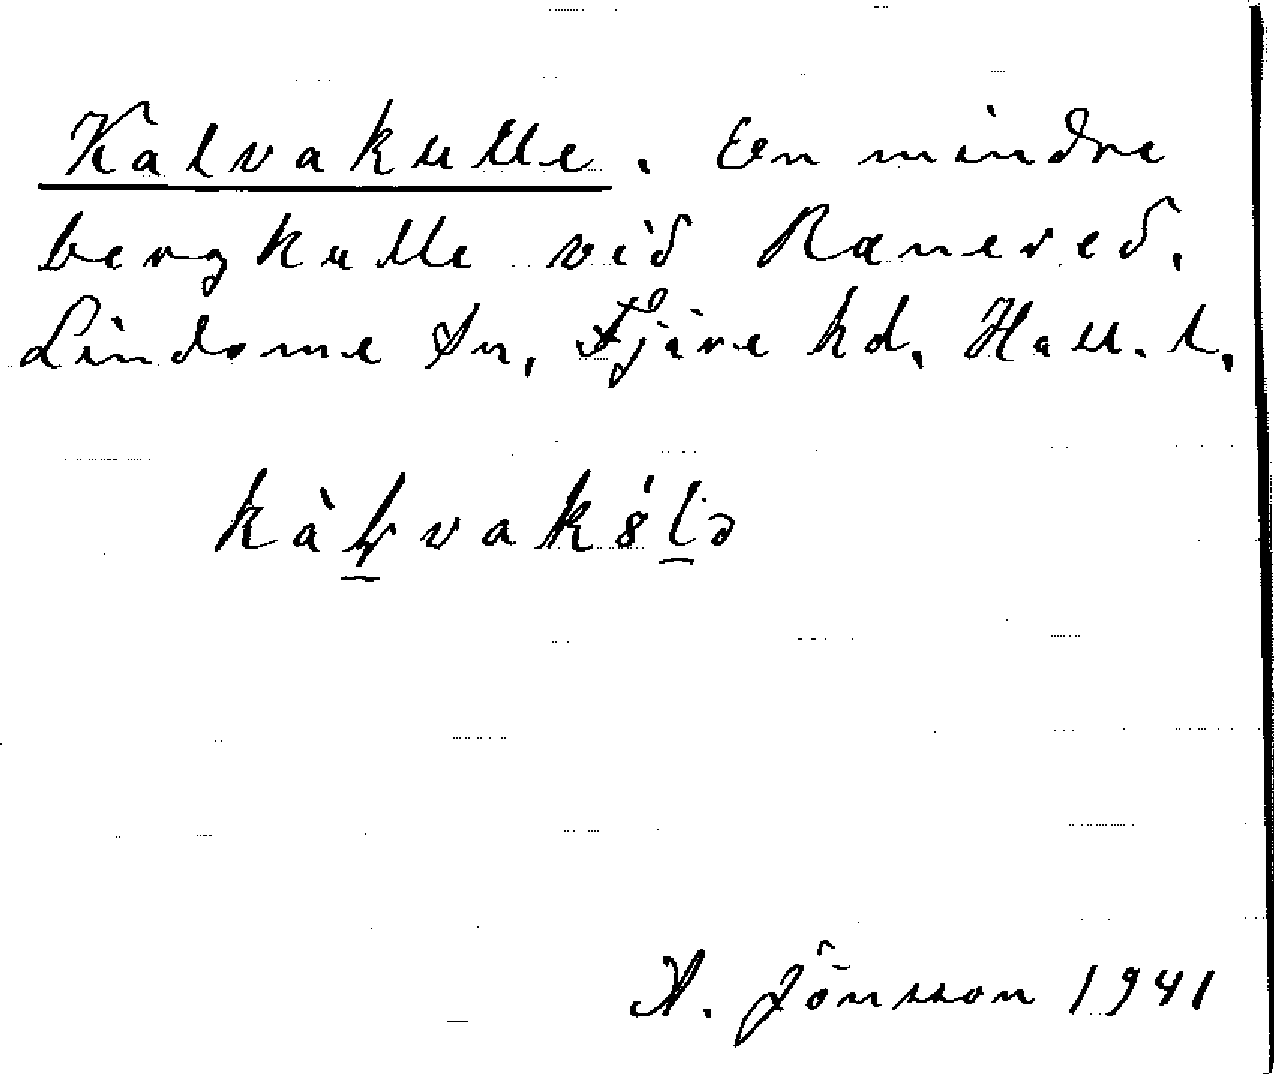 Kalvakulle. En mindre
bergkulle vid Ranered.
Lindome sn, Fjäre hd, Hall. l.
A. Jönsson 1941